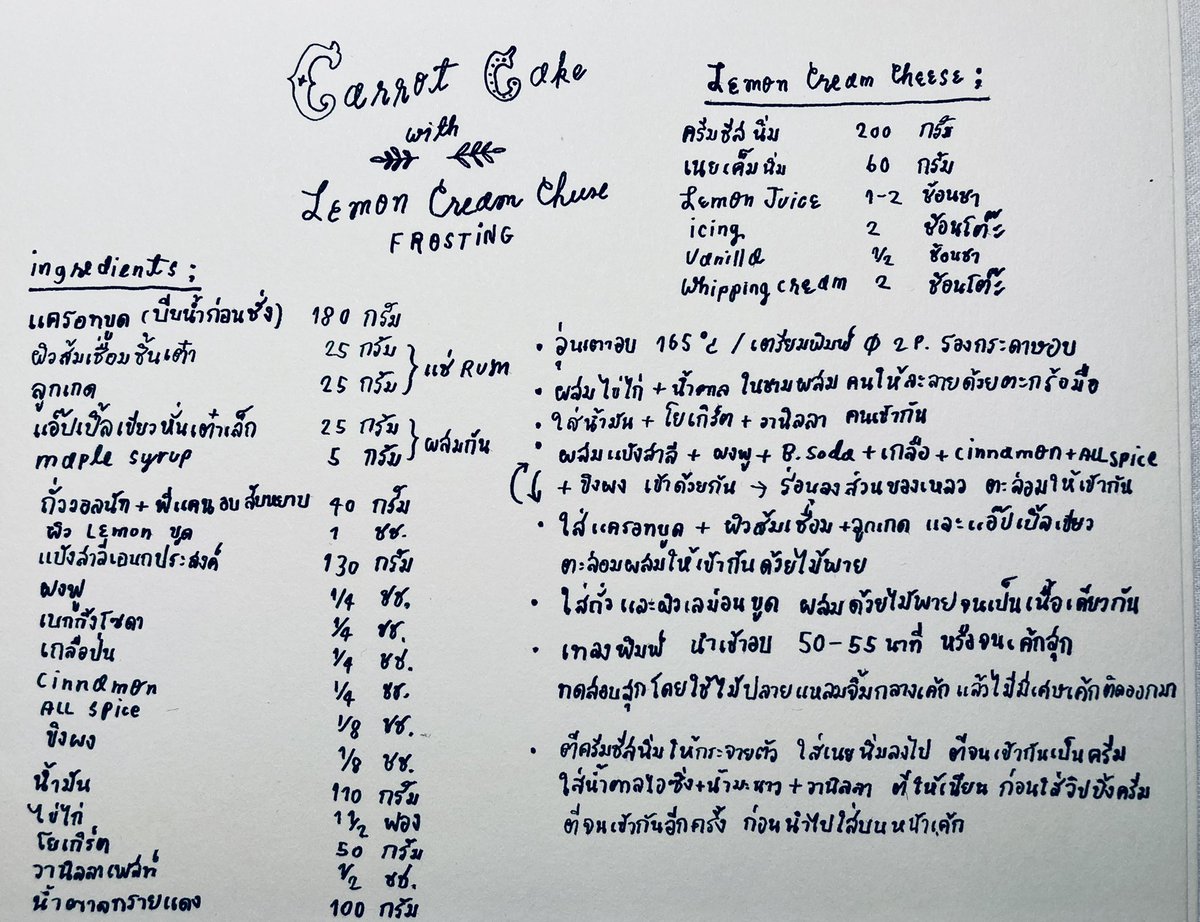 Carrot Cake
with
Lemon Cream Cheese
FROSTING
ingredients ;
แครอทขูด (บีบน้ำก่อนชั่ง) 180 กรัม
ผิวส้มเชื่อมชิ้นเต๋า 25 กรัม
ลูกเกด 25 กรัม } แช่ RUM
แอ๊ปเปิ้ลเขียวหั่นเต๋าเล็ก 25 กรัม
maple syrup 5 กรัม } ผสมกัน
ถั่ววอลนัท + พีแคน อบ สับหยาบ 40 กรัม
ผิว Lemon ขูด 1 ชช.
แป้งสาลีเอนกประสงค์ 130 กรัม
ผงฟู 1/4 ชช.
เบกกิ้งโซดา 1/4 ชช.
เกลือป่น 1/4 ชช.
Cinnamon 1/4 ชช.
ALL Spice 1/8 ชช.
ขิงผง 1/8 ชช.
น้ำมัน 110 กรัม
ไข่ไก่ 1 1/2 ฟอง
โยเกิร์ต 50 กรัม
วานิลลาเพสท์ 1/2 ชช.
น้ำตาลทรายแดง 100 กรัม
Lemon Cream Cheese ;
ครีมชีสนิ่ม 200 กรัม
เนยเค็มนิ่ม 60 กรัม
Lemon Juice 1-2 ช้อนชา
icing 2 ช้อนโต๊ะ
Vanilla 1/2 ช้อนชา
Whipping cream 2 ช้อนโต๊ะ
• อุ่นเตาอบ 165°c / เตรียมพิมพ์ Ø 2 P. รองกระดาษอบ
• ผสมไข่ไก่ + น้ำตาล ในชามผสม คนให้ละลายด้วยตะกร้อมือ
• ใส่น้ำมัน + โยเกิร์ต + วานิลลา คนเข้ากัน
• ผสมแป้งสาลี + ผงฟู + B. Soda + เกลือ + cinnamon + ALL spice
+ ขิงผง เข้าด้วยกัน → ร่อนลงส่วนของเหลว ตะล่อมให้เข้ากัน
• ใส่แครอทขูด + ผิวส้มเชื่อม + ลูกเกด และแอ๊ปเปิ้ลเขียว
ตะล่อมผสมให้เข้ากันด้วยไม้พาย
• ใส่ถั่ว และผิวเลม่อนขูด ผสมด้วยไม้พายจนเป็นเนื้อเดียวกัน
• เทลงพิมพ์ นำเข้าอบ 50-55 นาที หรือจนเค้กสุก
ทดสอบสุกโดยใช้ไม้ปลายแหลมจิ้มกลางเค้ก แล้วไม่มีเศษเค้กติดออกมา
• ตีครีมชีสนิ่มให้กระจายตัว ใส่เนยนิ่มลงไป ตีจนเข้ากันเป็นครีม
ใส่น้ำตาลไอซิ่ง+น้ำมะนาว + วานิลลา ตีให้เนียน ก่อนใส่วิปปิ้งครีม
ตีจนเข้ากันอีกครั้ง ก่อนนำไปใส่บนหน้าเค้ก